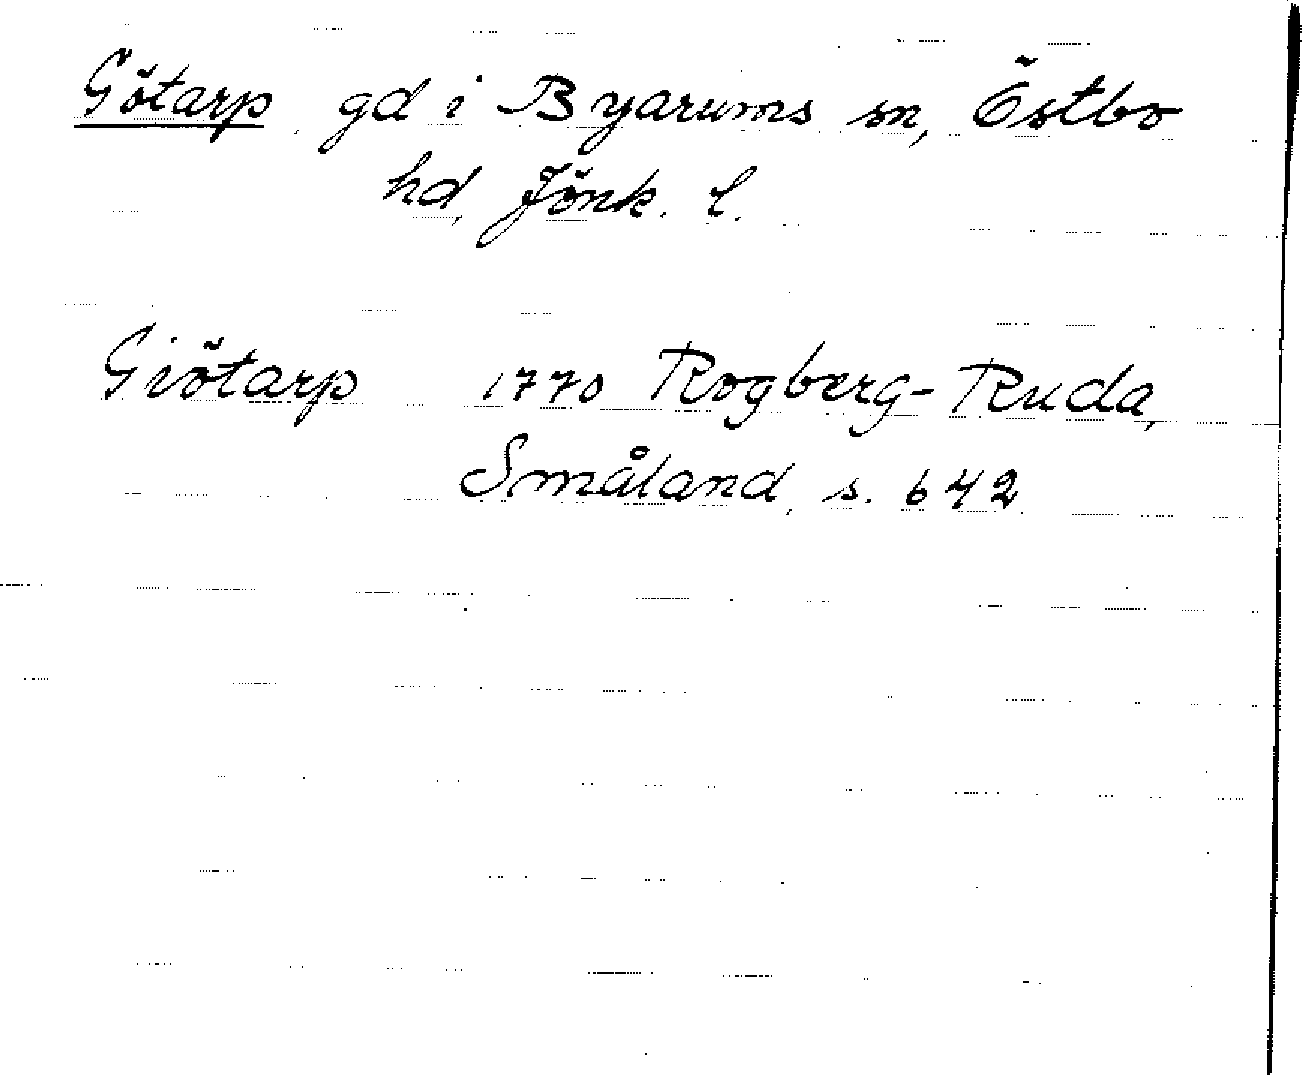 Götarp, gd i Byarums sn, Östbo
hd, Jönk. l.
Giötarp 1770 Rogberg-Ruda,
Småland, s. 642